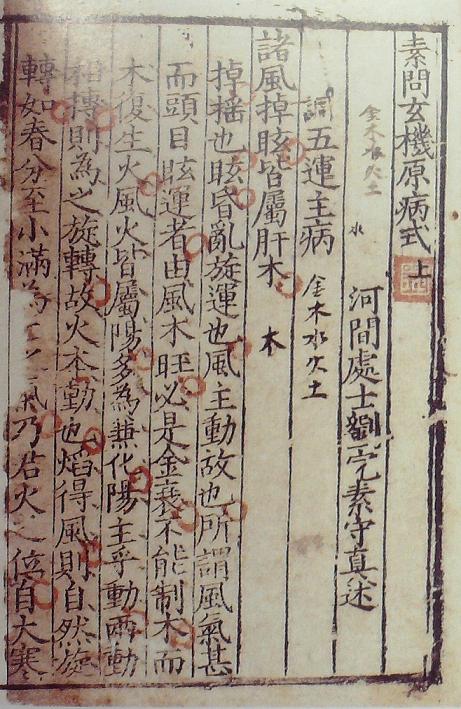 素問玄機原病式 上
金木水火土
水
河間處士劉完素守真述
五運主病 金木水火土
諸風掉眩皆屬肝木 木
掉搖也眩昏亂旋運也風主動故也所謂風氣甚
而頭目眩運者由風木旺必是金衰不能制木而
木復生火風火皆屬陽多為兼化陽主乎動兩動
相搏則為之旋轉故火本動也焰得風則自然旋
轉如春分至小滿為 乃君火之位自大寒